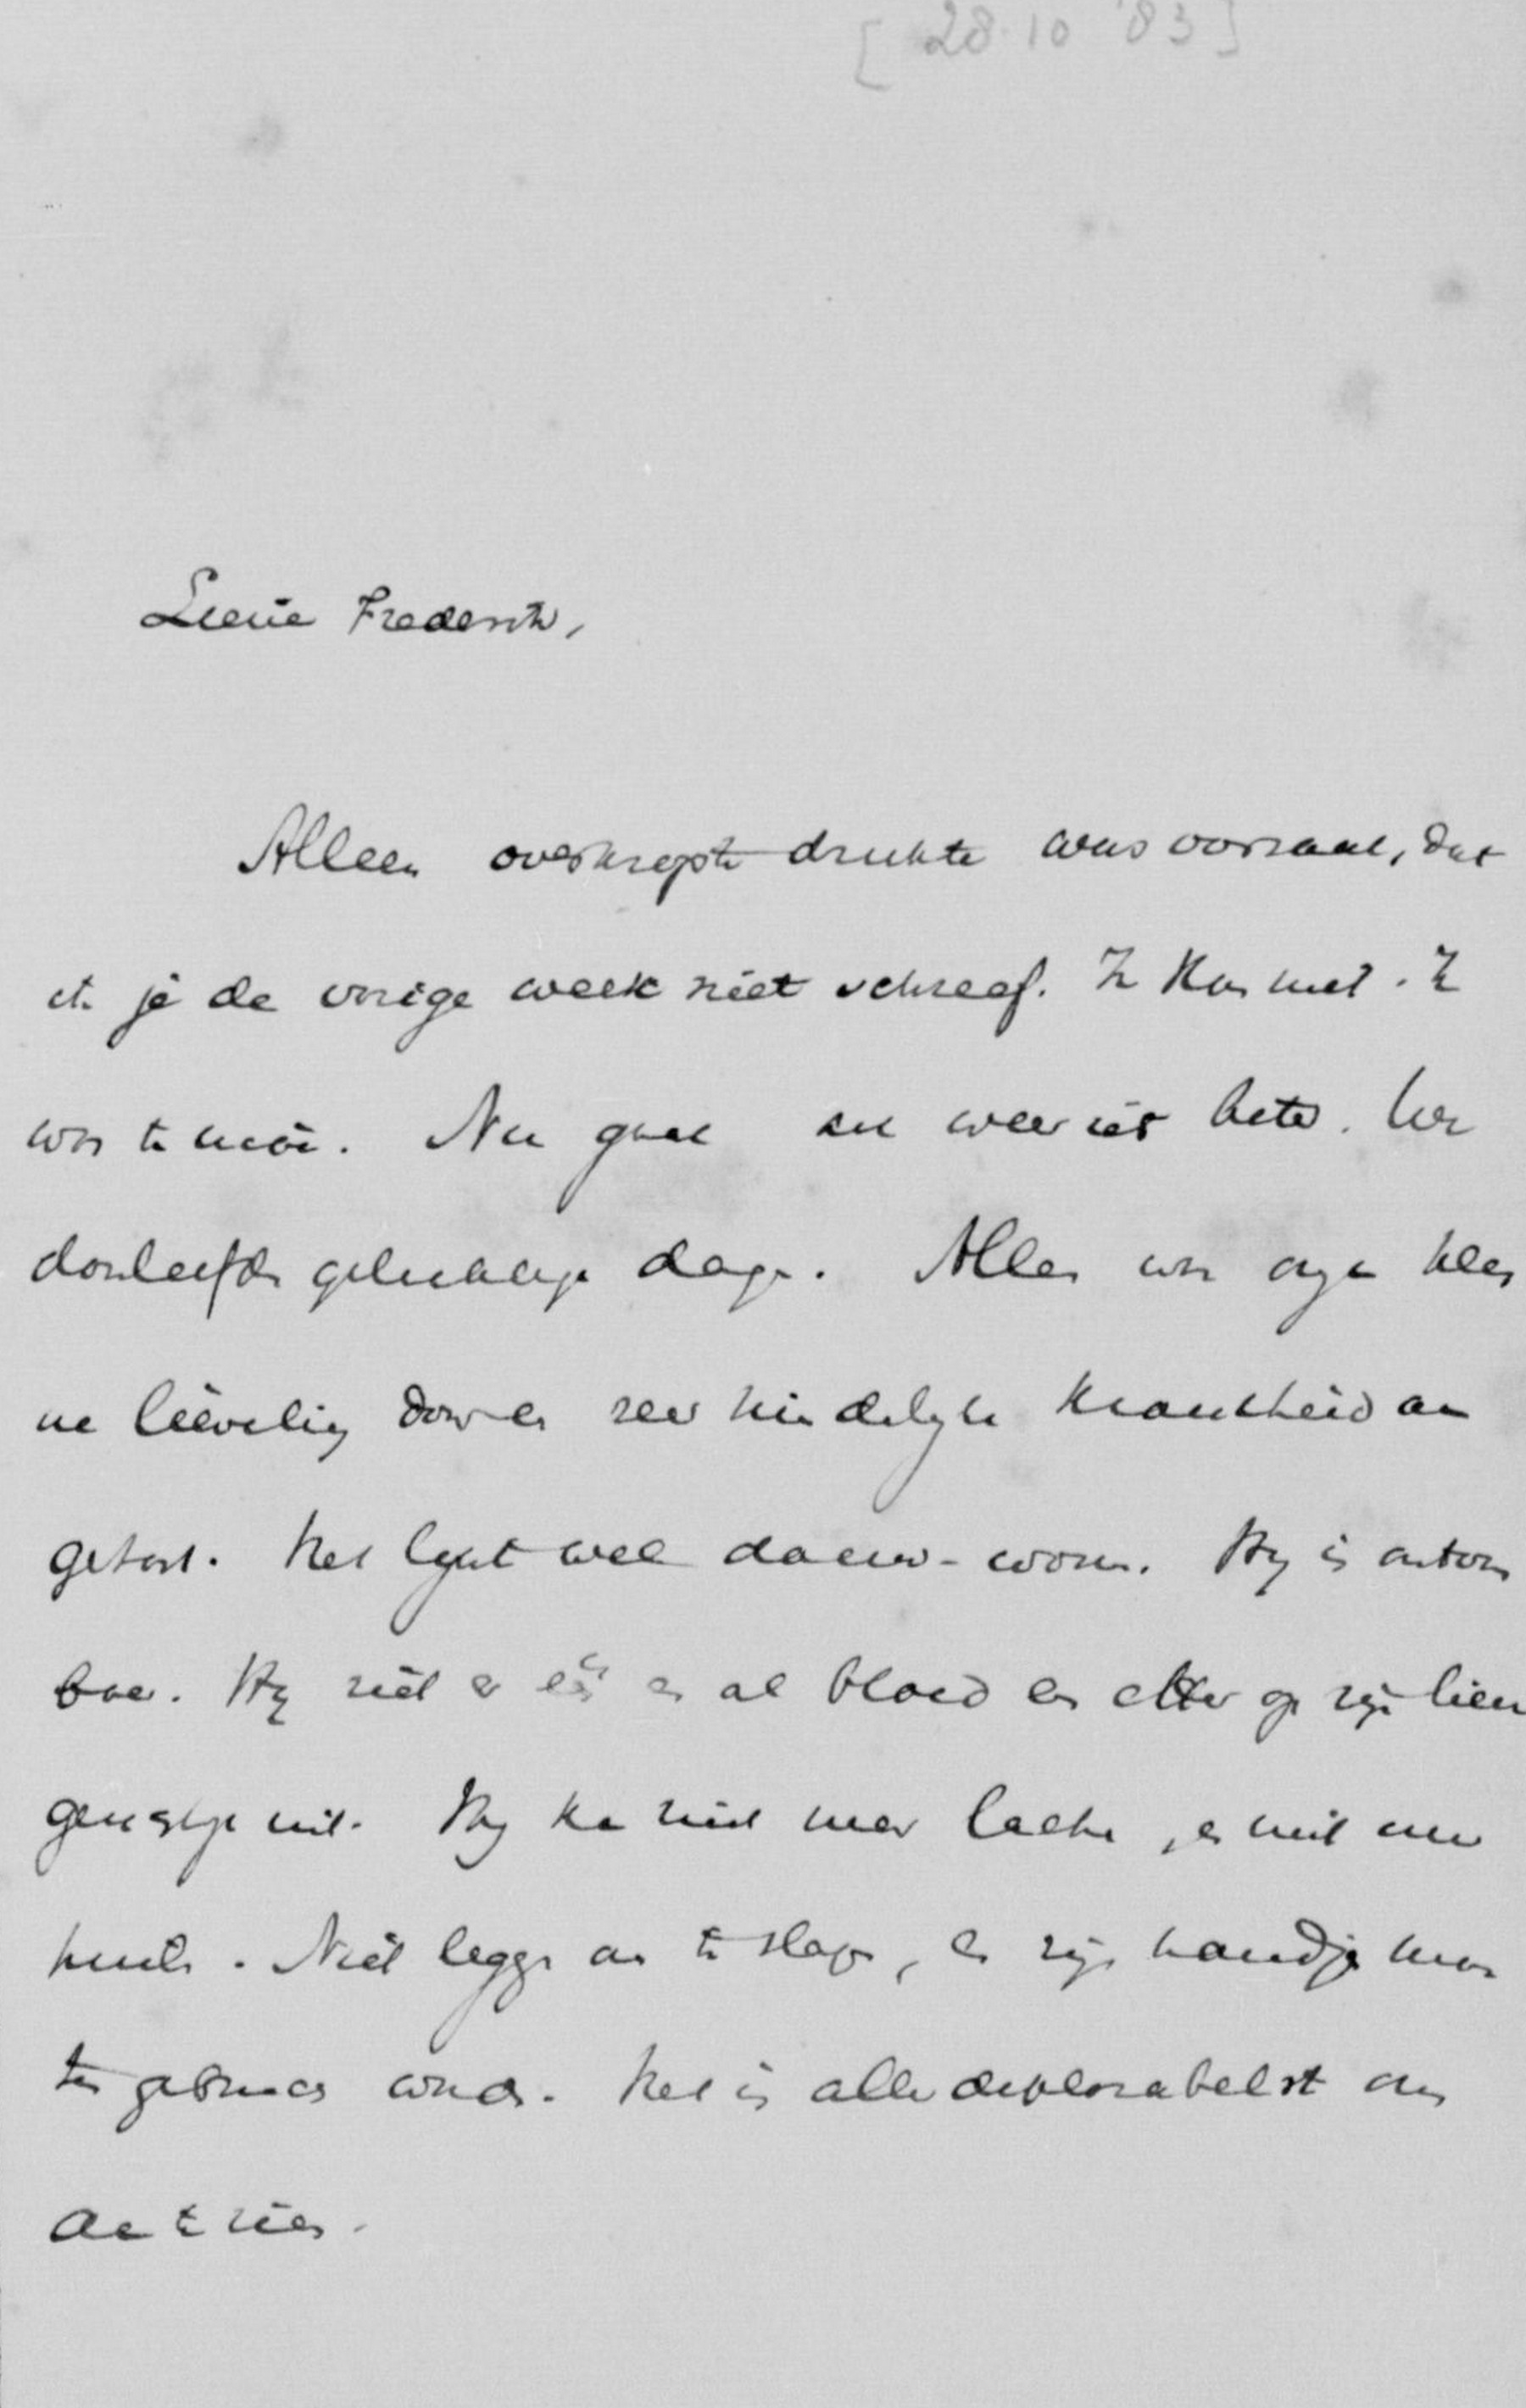 [28.10 '83]
Lieve Frederik,
Alleen overkropte drukte was oorzaak, dat
ik je de vorige week niet schreef. Ik kon niet. Ik
was te moe. Nu gaat het weer iets beter. We
doorleefden gelukkige dagen. Alleen was onze kleine
lieveling door een zeer hinderlijke krankheid aan
getast. Het lijkt wel dauw-worm. Hij is
Hij ziet er en al bloed en etter op zijn
uit. Hij kan niet meer lachen, en niet meer
Niet leggen om te slapen, en zijn handjes
gebonden worden. Het is allerdeplorabelst om
aan te zien.